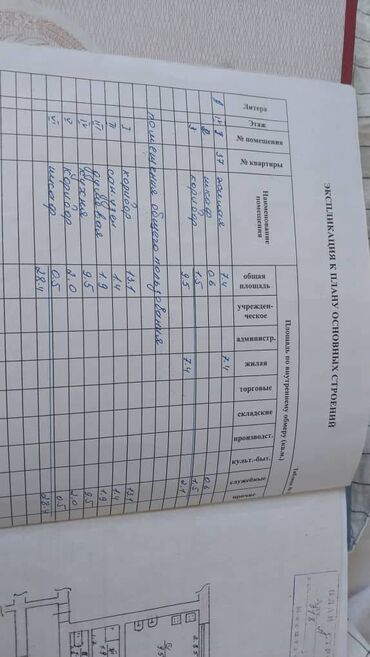 ЭКСПЛИКАЦИЯ К ПЛАНУ ОСНОВНЫХ СТРОЕНИЙ
Площадь по внутреннему обмеру (кв.м.)
Литера
Этаж
№ помещения
№ квартиры
Наименование помещения
общая площадь
учрежден-ческое
админитр.
жилая
торговые
складские
производст.
культ.-быт.
служебные
прочие
1 37 жилая 7.4 7.4
2 шкаф 0.6 0.6
3 коридор 1.5 1.5
9.5 2.1
помещения общего пользования
I коридор 13.1 13.1
II санузел 1.4 1.4
III душевая 1.9 1.9
IV кухня 9.5 9.5
V коридор 2.0 2.0
VI шкаф 0.5 0.5
28.4 28.4